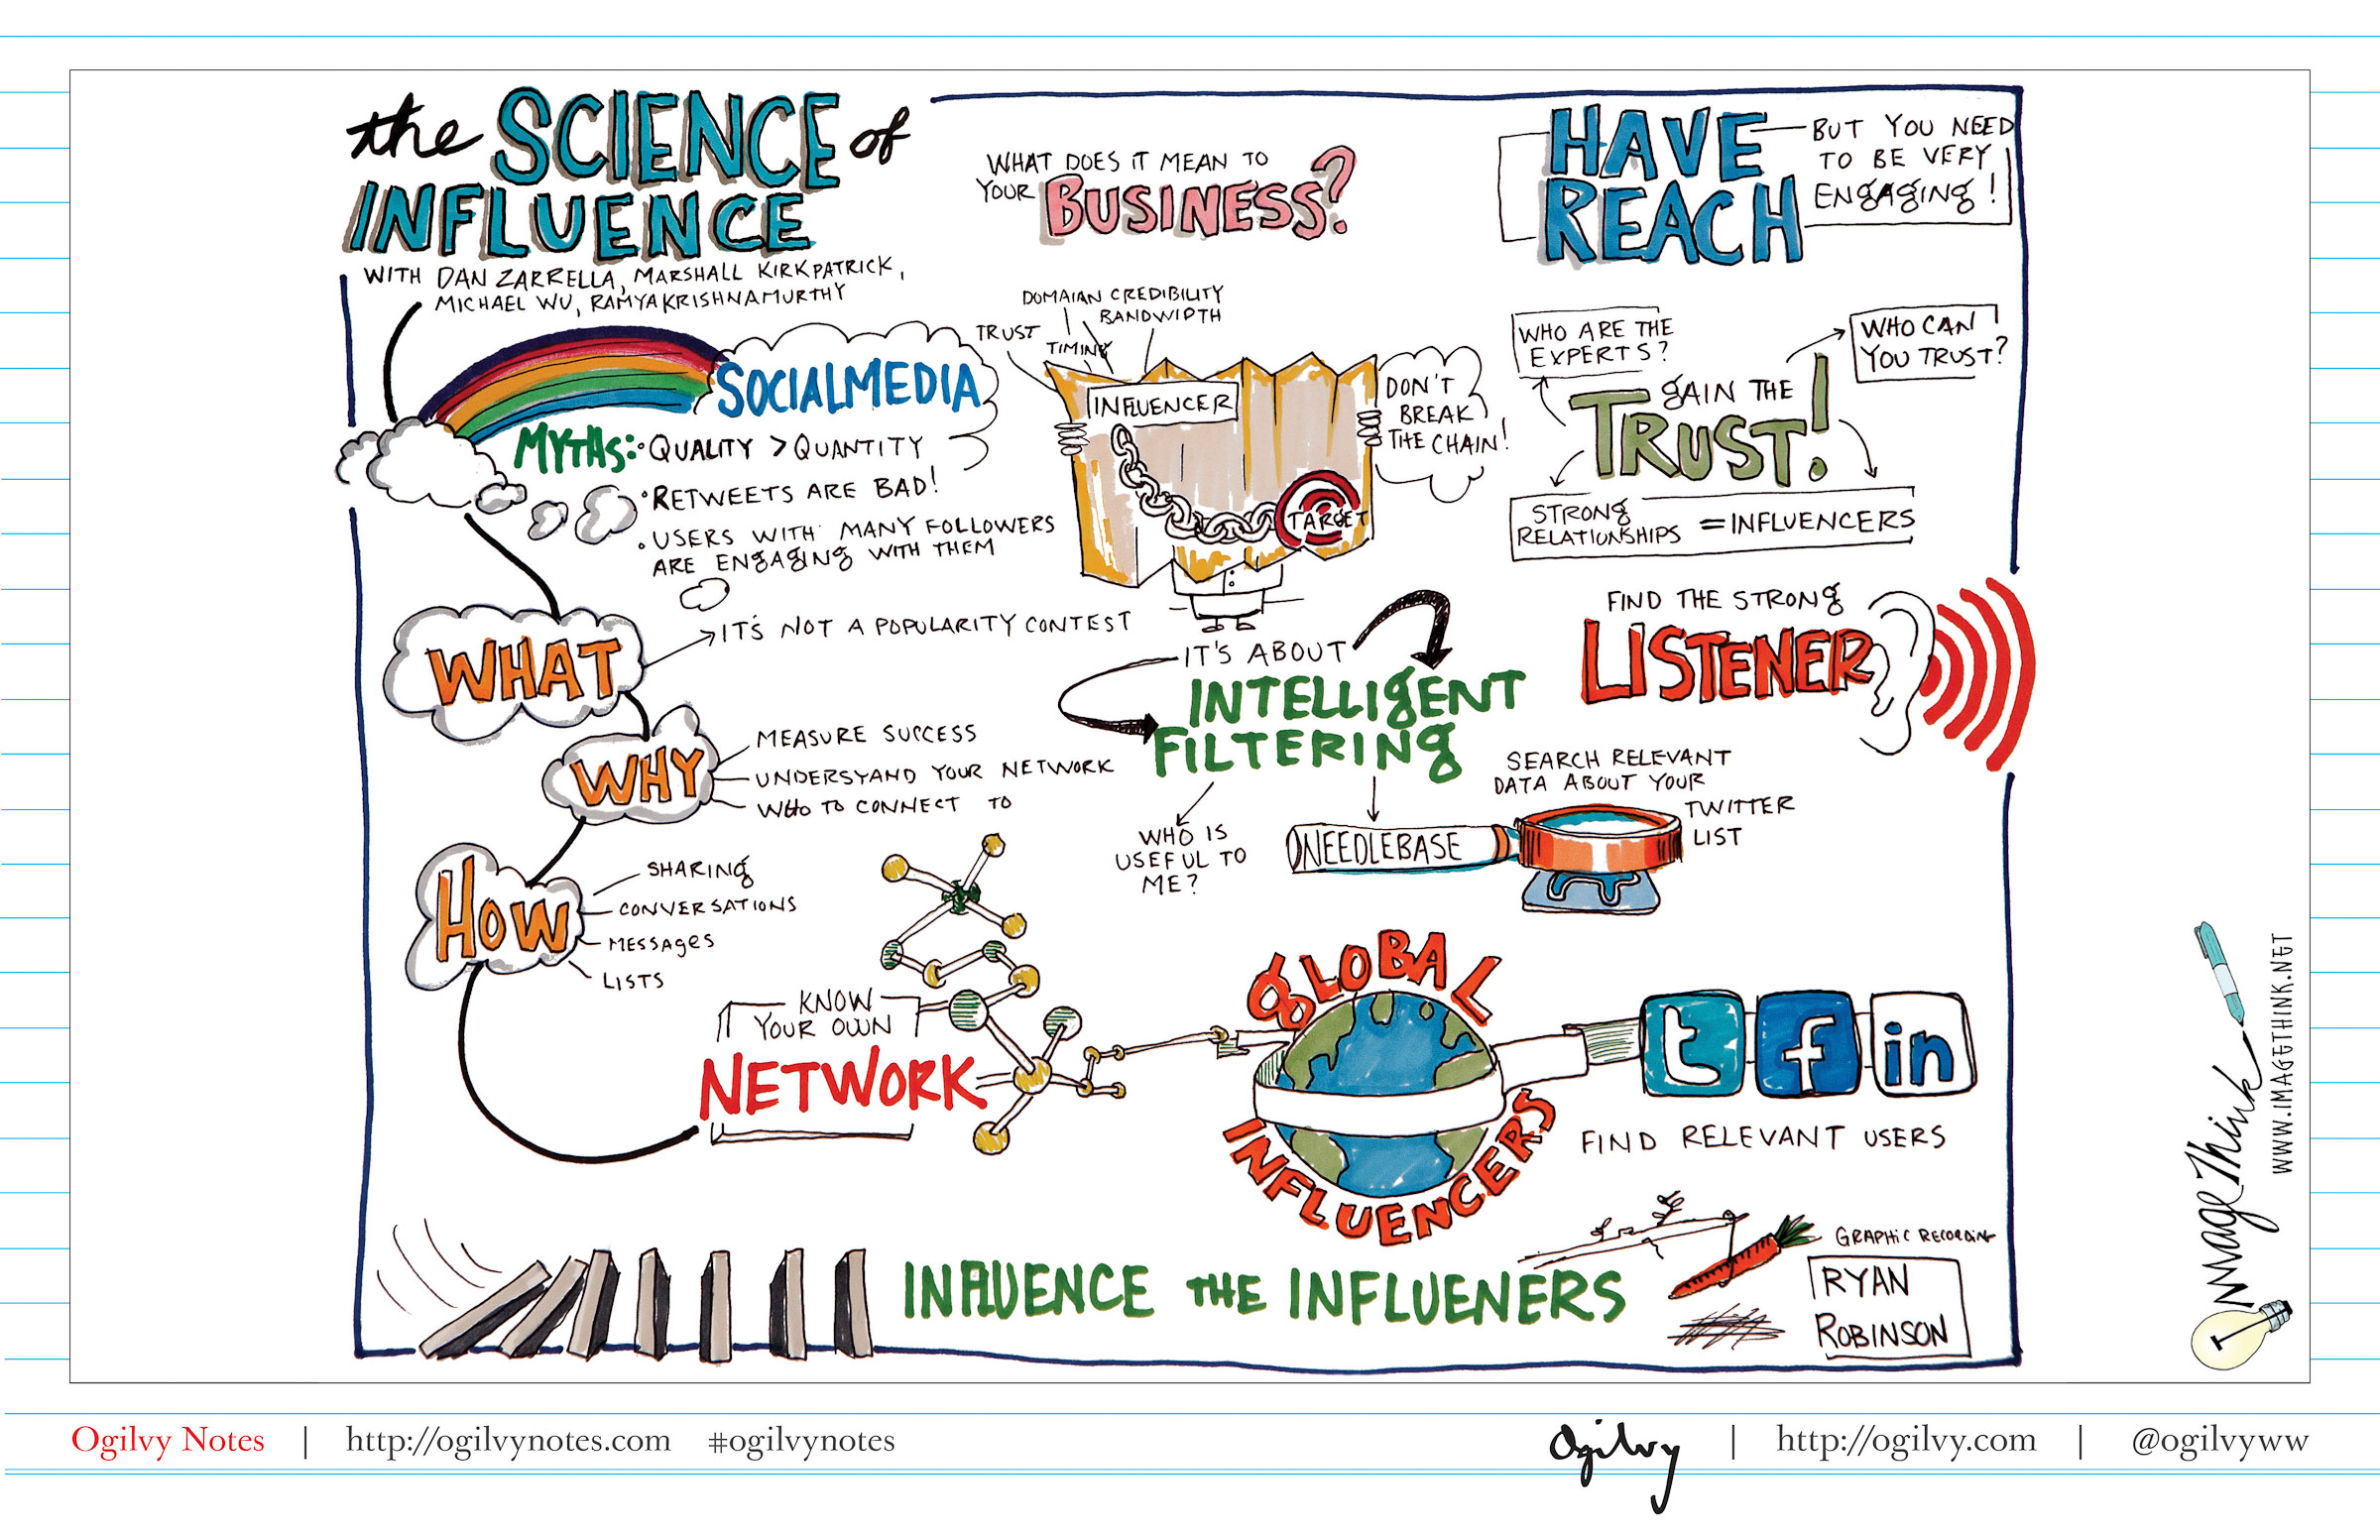 the SCIENCE of
INFLUENCE
WITH DAN ZARRELLA, MARSHALL KIRKPATRICK,
MICHAEL WU, RAMYA KRISHNAMURTHY
SOCIALMEDIA
MYTHS:
• QUALITY > QUANTITY
• RETWEETS ARE BAD!
• USERS WITH MANY FOLLOWERS
ARE ENGAGING WITH THEM
WHAT
IT'S NOT A POPULARITY CONTEST
WHY
MEASURE SUCCESS
UNDERSYAND YOUR NETWORK
WHO TO CONNECT TO
HOW
SHARING
CONVERSATIONS
MESSAGES
LISTS
KNOW
YOUR OWN
NETWORK
WHAT DOES IT MEAN TO
YOUR BUSINESS?
DOMAIAN CREDIBILITY
BANDWIDTH
TRUST
TIMING
INFLUENCER
TARGET
DON'T
BREAK
THE CHAIN!
IT'S ABOUT
INTELLIGENT
FILTERING
WHO IS
USEFUL TO
ME?
NEEDLEBASE
SEARCH RELEVANT
DATA ABOUT YOUR
TWITTER
LIST
HAVE
REACH
BUT YOU NEED
TO BE VERY
ENGAGING!
WHO ARE THE
EXPERTS?
WHO CAN
YOU TRUST?
GAIN THE
TRUST!
STRONG
RELATIONSHIPS = INFLUENCERS
FIND THE STRONG
LISTENER
GLOBAL
INFLUENCERS
t f in
FIND RELEVANT USERS
INFLUENCE THE INFLUENERS
GRAPHIC RECORDING
RYAN
ROBINSON
ImageThink
WWW.IMAGETHINK.NET
Ogilvy Notes | http://ogilvynotes.com #ogilvynotes
Ogilvy | http://ogilvy.com | @ogilvyww